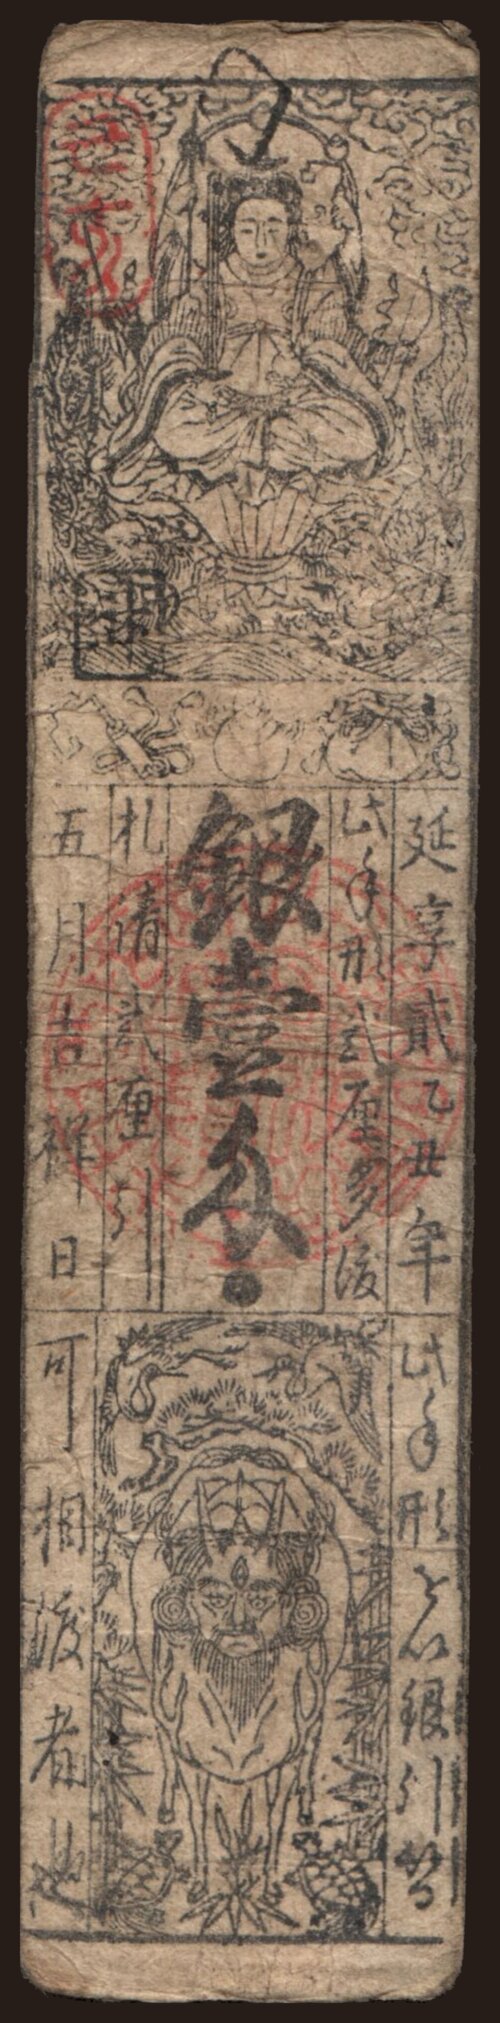 延享貳乙丑年
此手形弐厘多渡
銀壹匁
札請弐厘引
五月吉祥日
此手形を以銀引替
可相渡者也